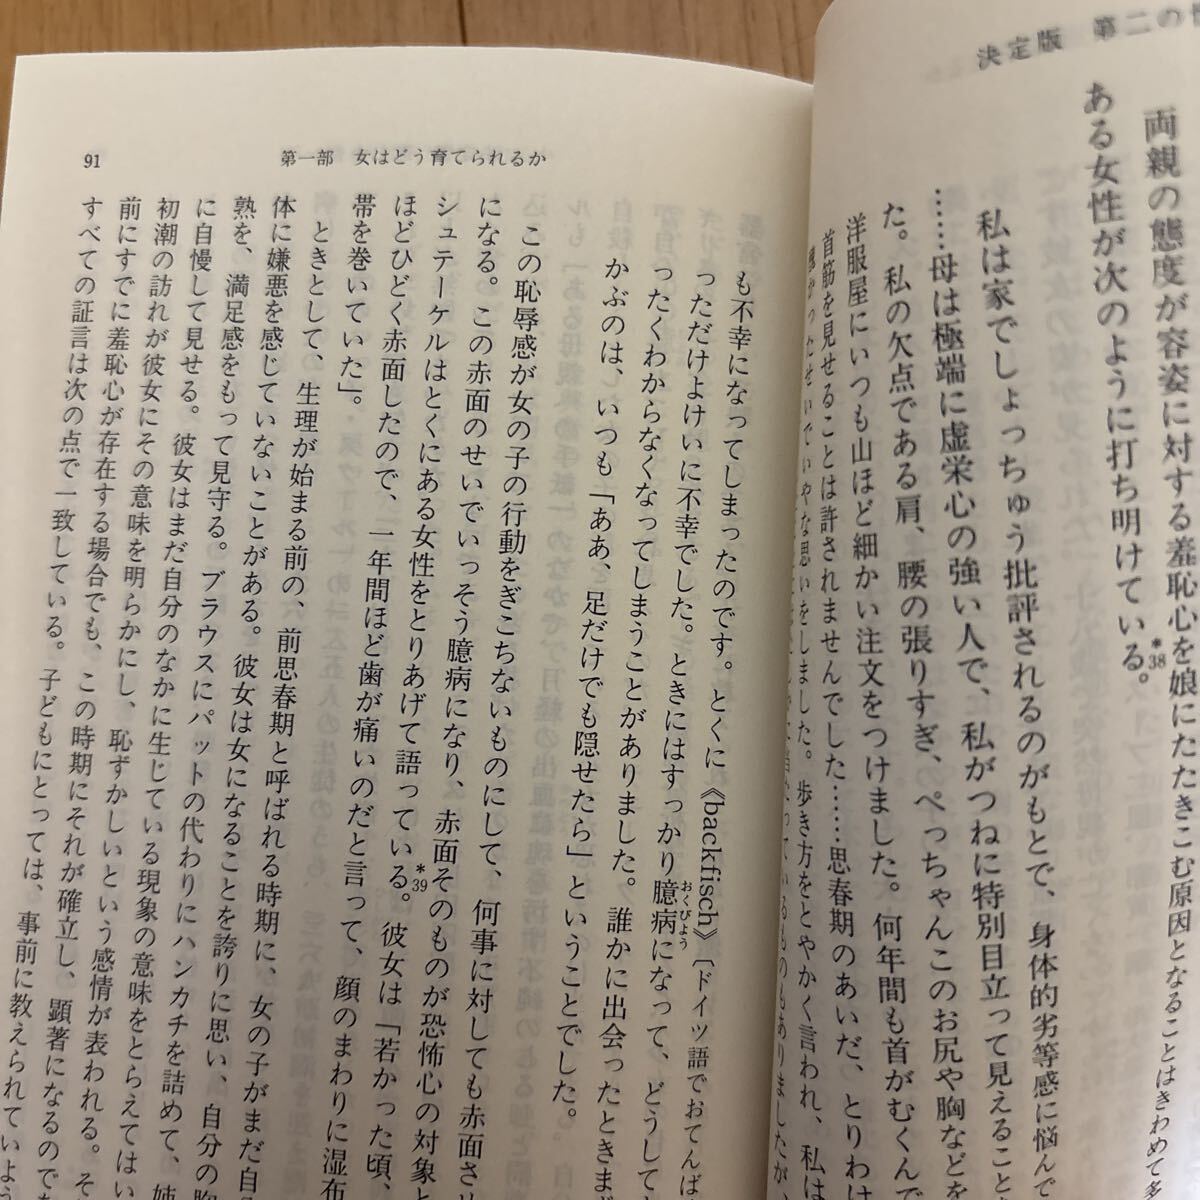 決定版 第二の
両親の態度が容姿に対する羞恥心を娘にたたきこむ原因となることはきわめて多
ある女性が次のように打ち明けている。*38
私は家でしょっちゅう批評されるのがもとで、身体的劣等感に悩んで
……母は極端に虚栄心の強い人で、私がつねに特別目立って見えること
た。私の欠点である肩、腰の張りすぎ、ぺっちゃんこのお尻や胸などを
洋服屋にいつも山ほど細かい注文をつけました。何年間も首がむくんで
首筋を見せることは許されませんでした……思春期のあいだ、とりわけ
いやな思いをしました。歩き方をとやかく言われ、私は
ているものもありましたが、
91
第一部 女はどう育てられるか
も不幸になってしまったのです。とくに《backfisch》〔ドイツ語でおてんば
っただけよけいに不幸でした。ときにはすっかり臆病になって、どうして
おくびょう
ったくわからなくなってしまうことがありました。誰かに出会ったときまず
かぶのは、いつも「ああ、足だけでも隠せたら」ということでした。
この恥辱感が女の子の行動をぎこちないものにして、何事に対しても赤面さ
になる。この赤面のせいでいっそう臆病になり、赤面そのものが恐怖心の対象と
シュテーケルはとくにある女性をとりあげて語っている。*39彼女は「若かった頃、
ほどひどく赤面したので、一年間ほど歯が痛いのだと言って、顔のまわりに湿布
帯を巻いていた」。
ときとして、生理が始まる前の、前思春期と呼ばれる時期に、女の子がまだ自
体に嫌悪を感じていないことがある。彼女は女になることを誇りに思い、自分の胸
熟を、満足感をもって見守る。ブラウスにパットの代わりにハンカチを詰めて、姉
に自慢して見せる。彼女はまだ自分のなかに生じている現象の意味をとらえてはい
初潮の訪れが彼女にその意味を明らかにし、恥ずかしいという感情が表われる。そ
前にすでに羞恥心が存在する場合でも、この時期にそれが確立し、顕著になるのであ
すべての証言は次の点で一致している。子どもにとっては、事前に教えられていよう